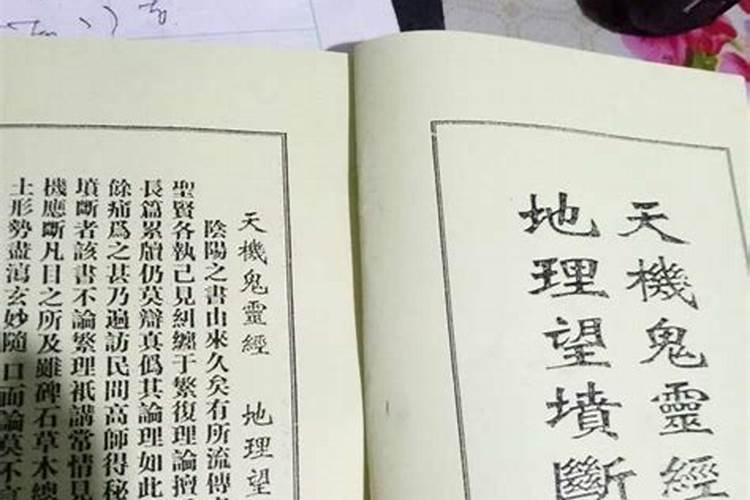 天機鬼靈經
地理望墳斷
天機鬼靈經 地理望
陰陽之書由來久矣有所流傳
聖賢各執己見糾纏于繁復理論擅
長篇累牘仍莫辯真僞其論理如此
餘痛爲之甚乃遍訪民間高師得秘
墳斷者該書不論繁理衹講常情見
機應斷凡目之所及雖碑石草木總
土形勢盡瀉玄妙隨口面論莫不